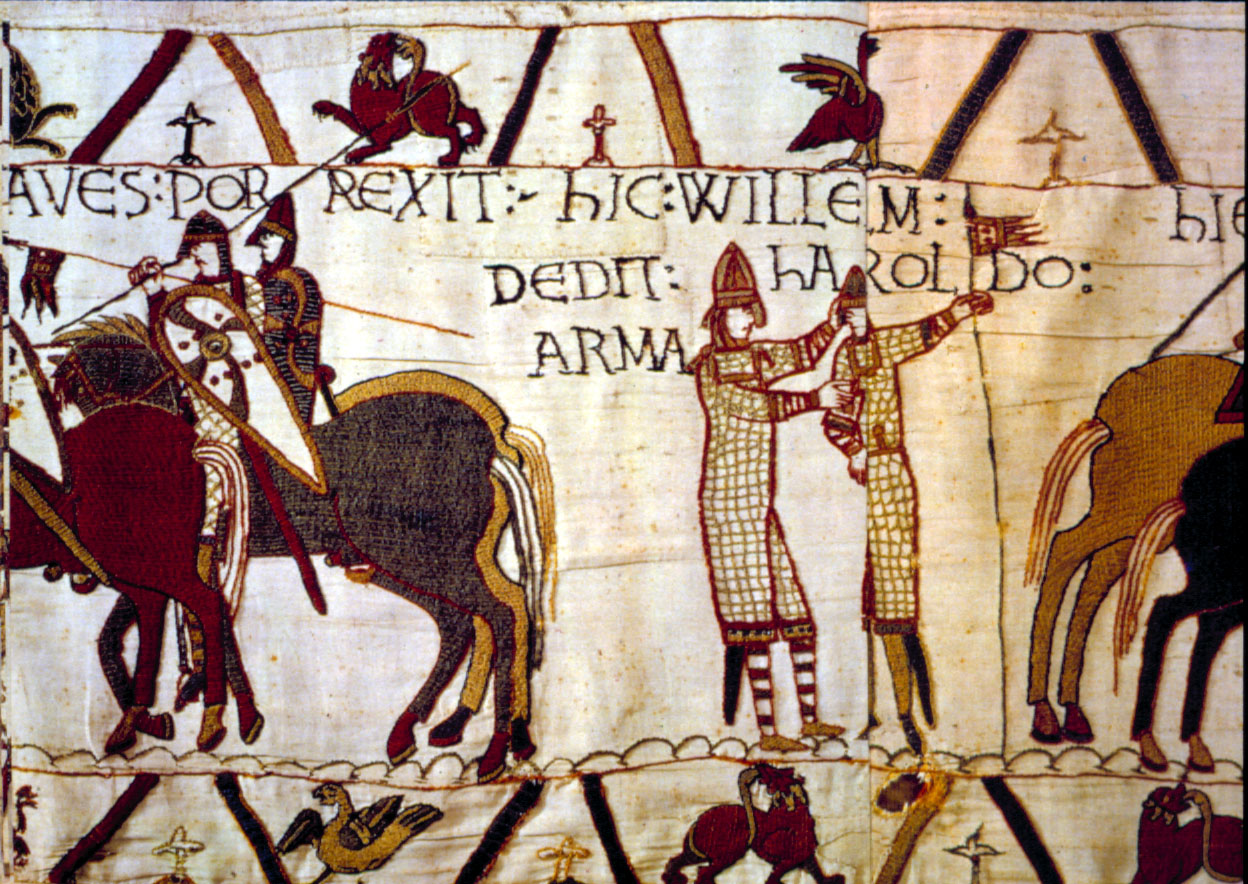 AVES: POR REXIT:- hIC: WILLELM: hIE
DEDIT: hAROLDO:
ARMA